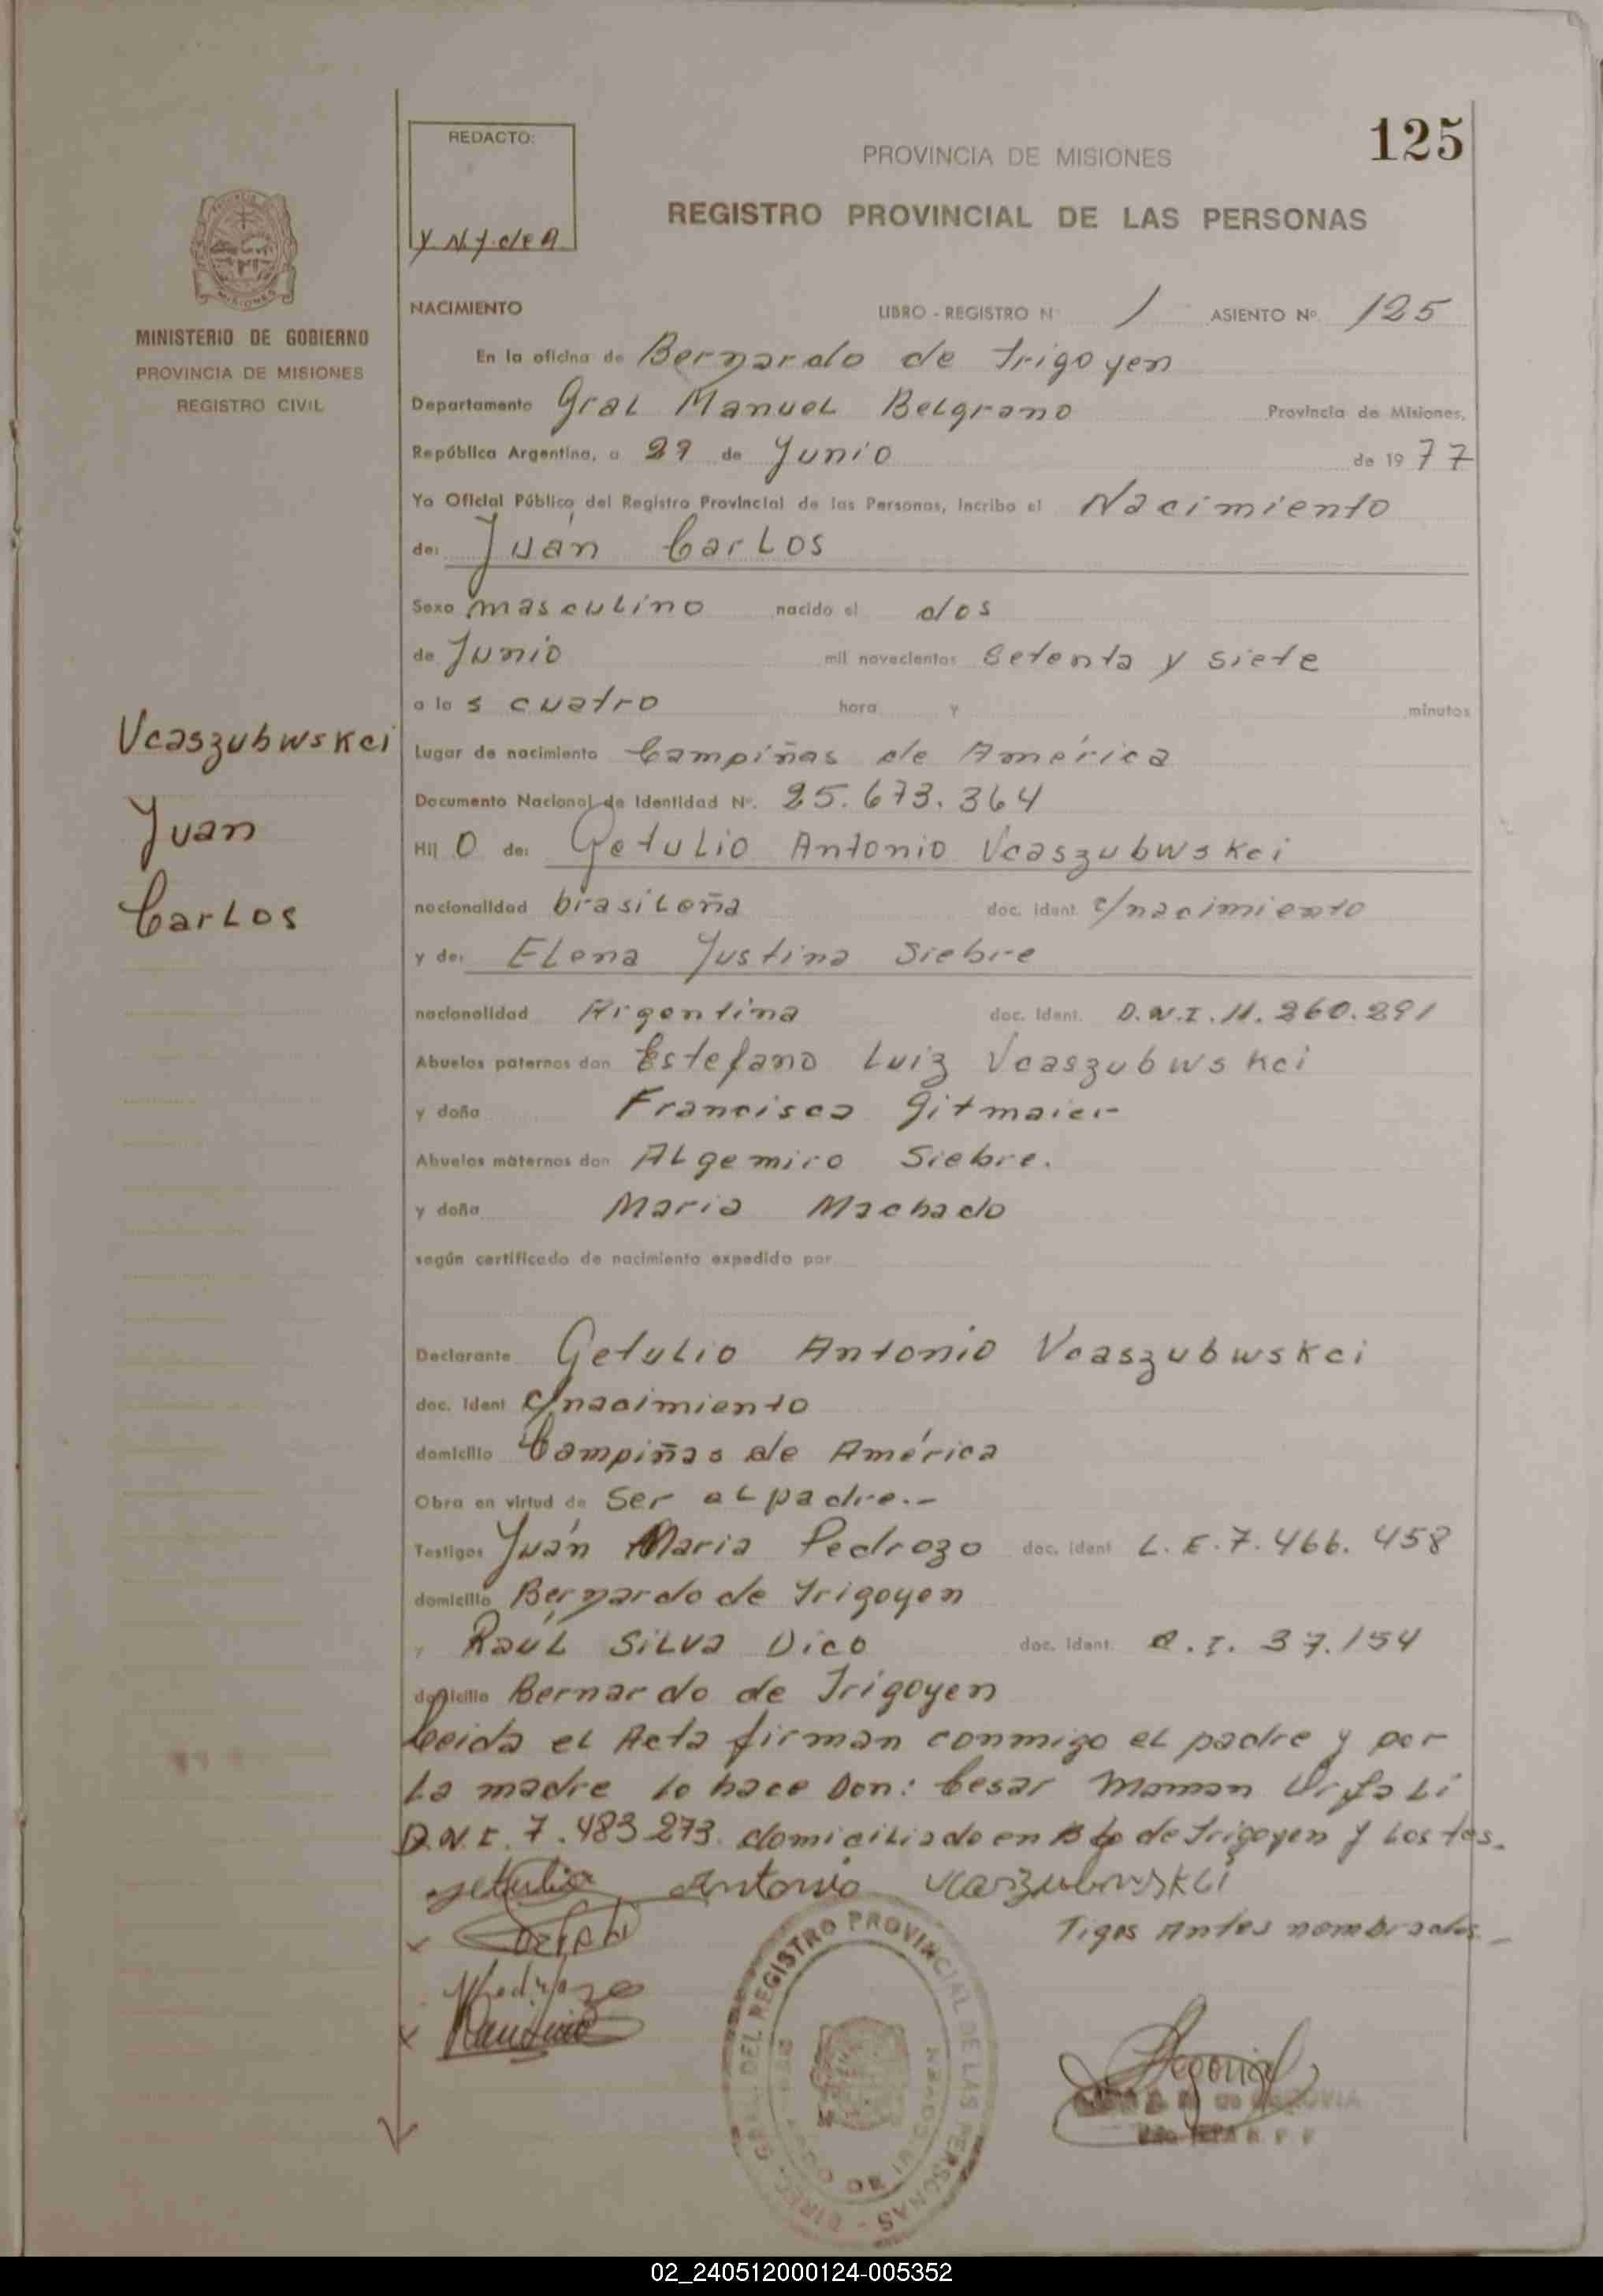 REDACTO:
125
PROVINCIA DE MISIONES
REGISTRO PROVINCIAL DE LAS PERSONAS
MINISTERIO DE GOBIERNO
PROVINCIA DE MISIONES
REGISTRO CIVIL
NACIMIENTO LIBRO - REGISTRO N° 1 ASIENTO Nº 125
En la oficina de Bernardo de Irigoyen
Departamento Gral Manuel Belgrano Provincia de Misiones,
República Argentina, a 29 de Junio de 1977
Yo Oficial Público del Registro Provincial de las Personas, Incribo el Nacimiento
de: Juán Carlos
Sexo masculino nacido el dos
de Junio mil novecientos setenta y siete
a las cuatro hora y minutos
Vcaszubwskci
Juan
Carlos
Lugar de nacimiento Campiñas de América
Documento Nacional de Identidad Nº. 25.673.364
Hijo de: Getulio Antonio Vcaszubwskci
nacionalidad brasileña doc. ident. c/nacimiento
y de: Elena Justina Siebre
nacionalidad Argentina doc. ident. D.N.I. 11.260.291
Abuelos paternos don Estefano Luiz Vcaszubwskci
y doña Francisca Gitmaier
Abuelos maternos don Algemiro Siebre.
y doña Maria Machado
según certificado de nacimiento expedido por
Declarante Getulio Antonio Vcaszubwskci
doc. ident c/nacimiento
domicilio Campiñas de América
Obra en virtud de ser el padre.-
Testigos Juán Maria Pedrozo doc. ident L.E. 7.466.458
domicilio Bernardo de Irigoyen
y Raúl Silva Dico doc. ident. C.I. 37.154
domicilio Bernardo de Irigoyen
Leida el Acta firman conmigo el padre y por
la madre lo hace Don: Cesar Maman Urfali
D.N.I. 7.483.273. domiciliado en Bdo de Irigoyen y los tes-
Getulio Antonio Vcaszubwskci
Tigos Antes nombrados.-
DIREC. GRAL. DEL REGISTRO PROVINCIAL DE LAS PERSONAS
02_240512000124-005352